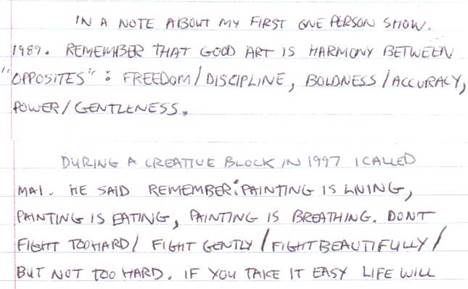 IN A NOTE ABOUT MY FIRST ONE PERSON SHOW.
1989. REMEMBER THAT GOOD ART IS HARMONY BETWEEN
"OPPOSITES": FREEDOM/DISCIPLINE, BOLDNESS/ACCURACY,
POWER/GENTLENESS.
DURING A CREATIVE BLOCK IN 1997 I CALLED
MAI. HE SAID REMEMBER: PAINTING IS LIVING,
PAINTING IS EATING, PAINTING IS BREATHING. DONT
FIGHT TOO HARD/ FIGHT GENTLY/FIGHT BEAUTIFULLY/
BUT NOT TOO HARD. IF YOU TAKE IT EASY LIFE WILL